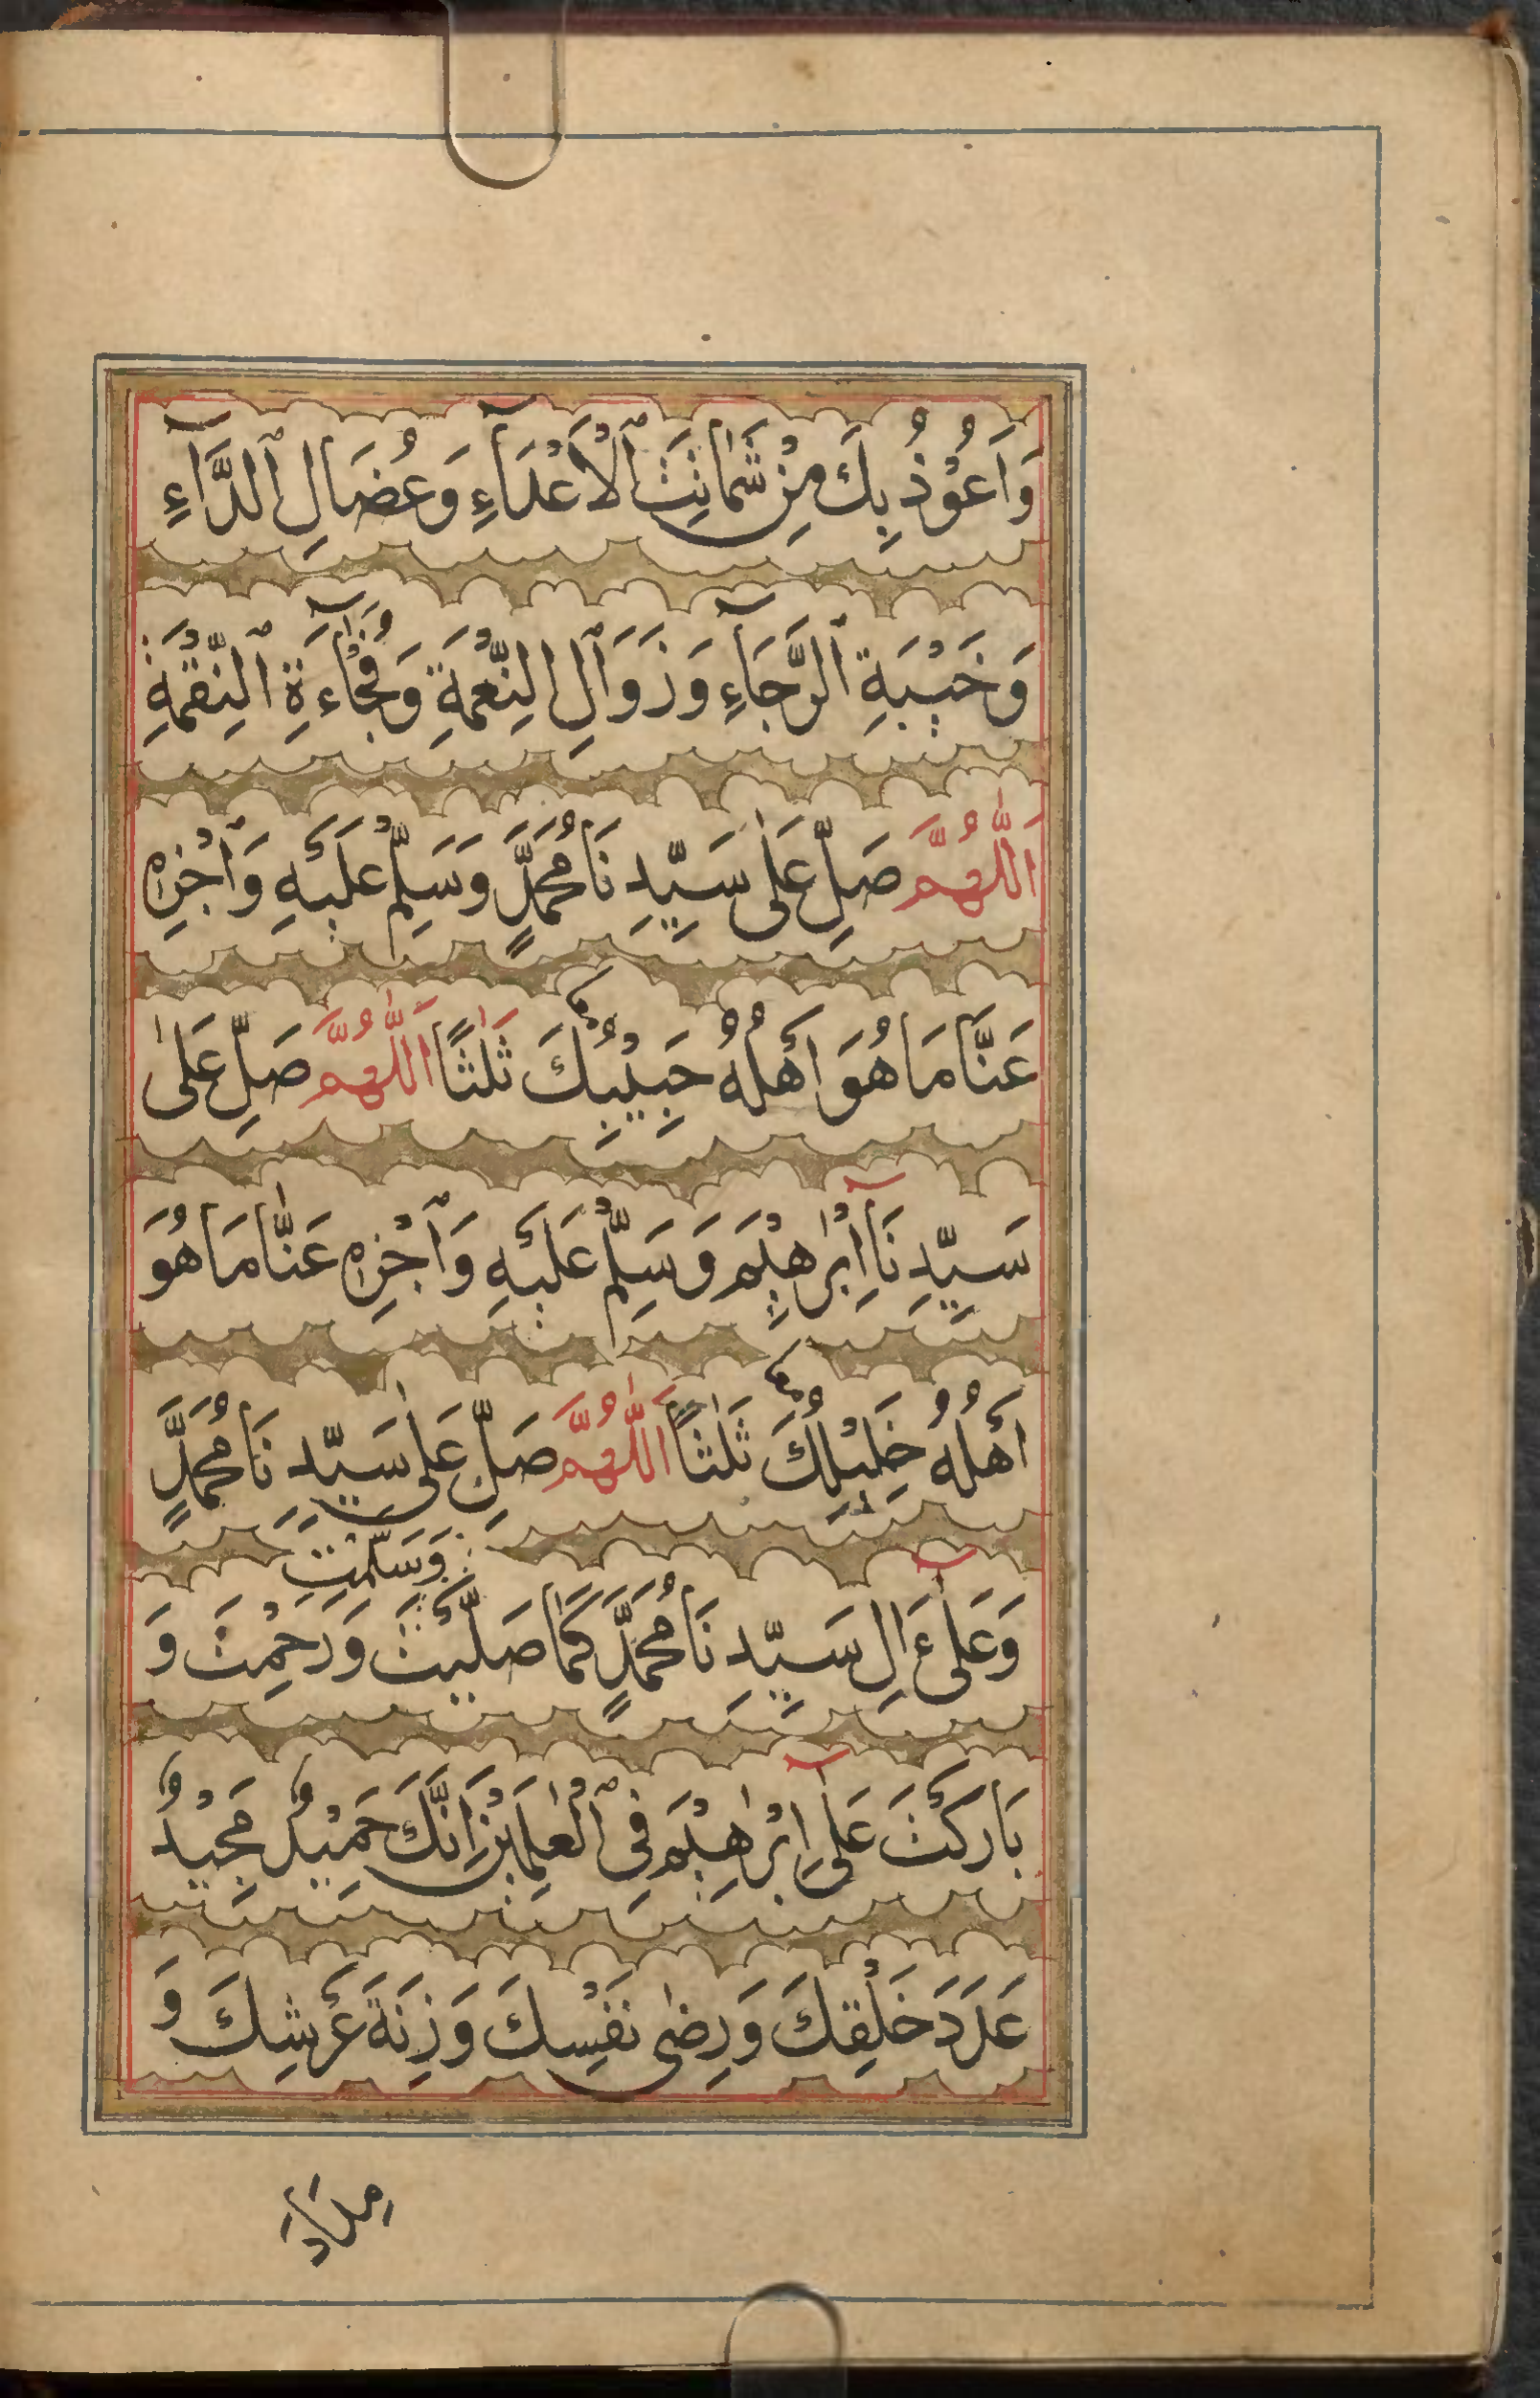 وَاَعُوْذُ بِكَ مِنْ شَمَاتَتِ ٱلْاَعْدَآءِ وَعُضَالِ ٱلدَّآءِ
وَخَيْبَةِ ٱلرَّجَآءِ وَزَوَالِ النِّعْمَةِ وَفُجَآءَةِ ٱلنِّقْمَةِ
اَللّٰهُمَّ صَلِّ عَلٰى سَيِّدِنَا مُحَمَّدٍ وَسَلِّمْ عَلَيْهِ وَٱجْزِهِ
عَنَّا مَا هُوَ اَهْلُهُ حَبِيْبُكَ ثَلٰثًا اَللّٰهُمَّ صَلِّ عَلٰى
سَيِّدِنَآ اِبْرٰهِيْمَ وَسَلِّمْ عَلَيْهِ وَٱجْزِهِ عَنَّا مَا هُوَ
اَهْلُهُ خَلِيْلُكَ ثَلٰثًا اَللّٰهُمَّ صَلِّ عَلٰى سَيِّدِنَا مُحَمَّدٍ
وَسَلَّمْتَ
وَعَلٰٓى ءَالِ سَيِّدِنَا مُحَمَّدٍ كَمَا صَلَّيْتَ وَرَحِمْتَ وَ
بَارَكْتَ عَلٰٓى اِبْرٰهِيْمَ فِى ٱلْعٰلَمِيْنَ اِنَّكَ حَمِيْدٌ مَجِيْدٌ
عَدَدَ خَلْقِكَ وَرِضٰى نَفْسِكَ وَزِنَةَ عَرْشِكَ وَ
مِدَادَ